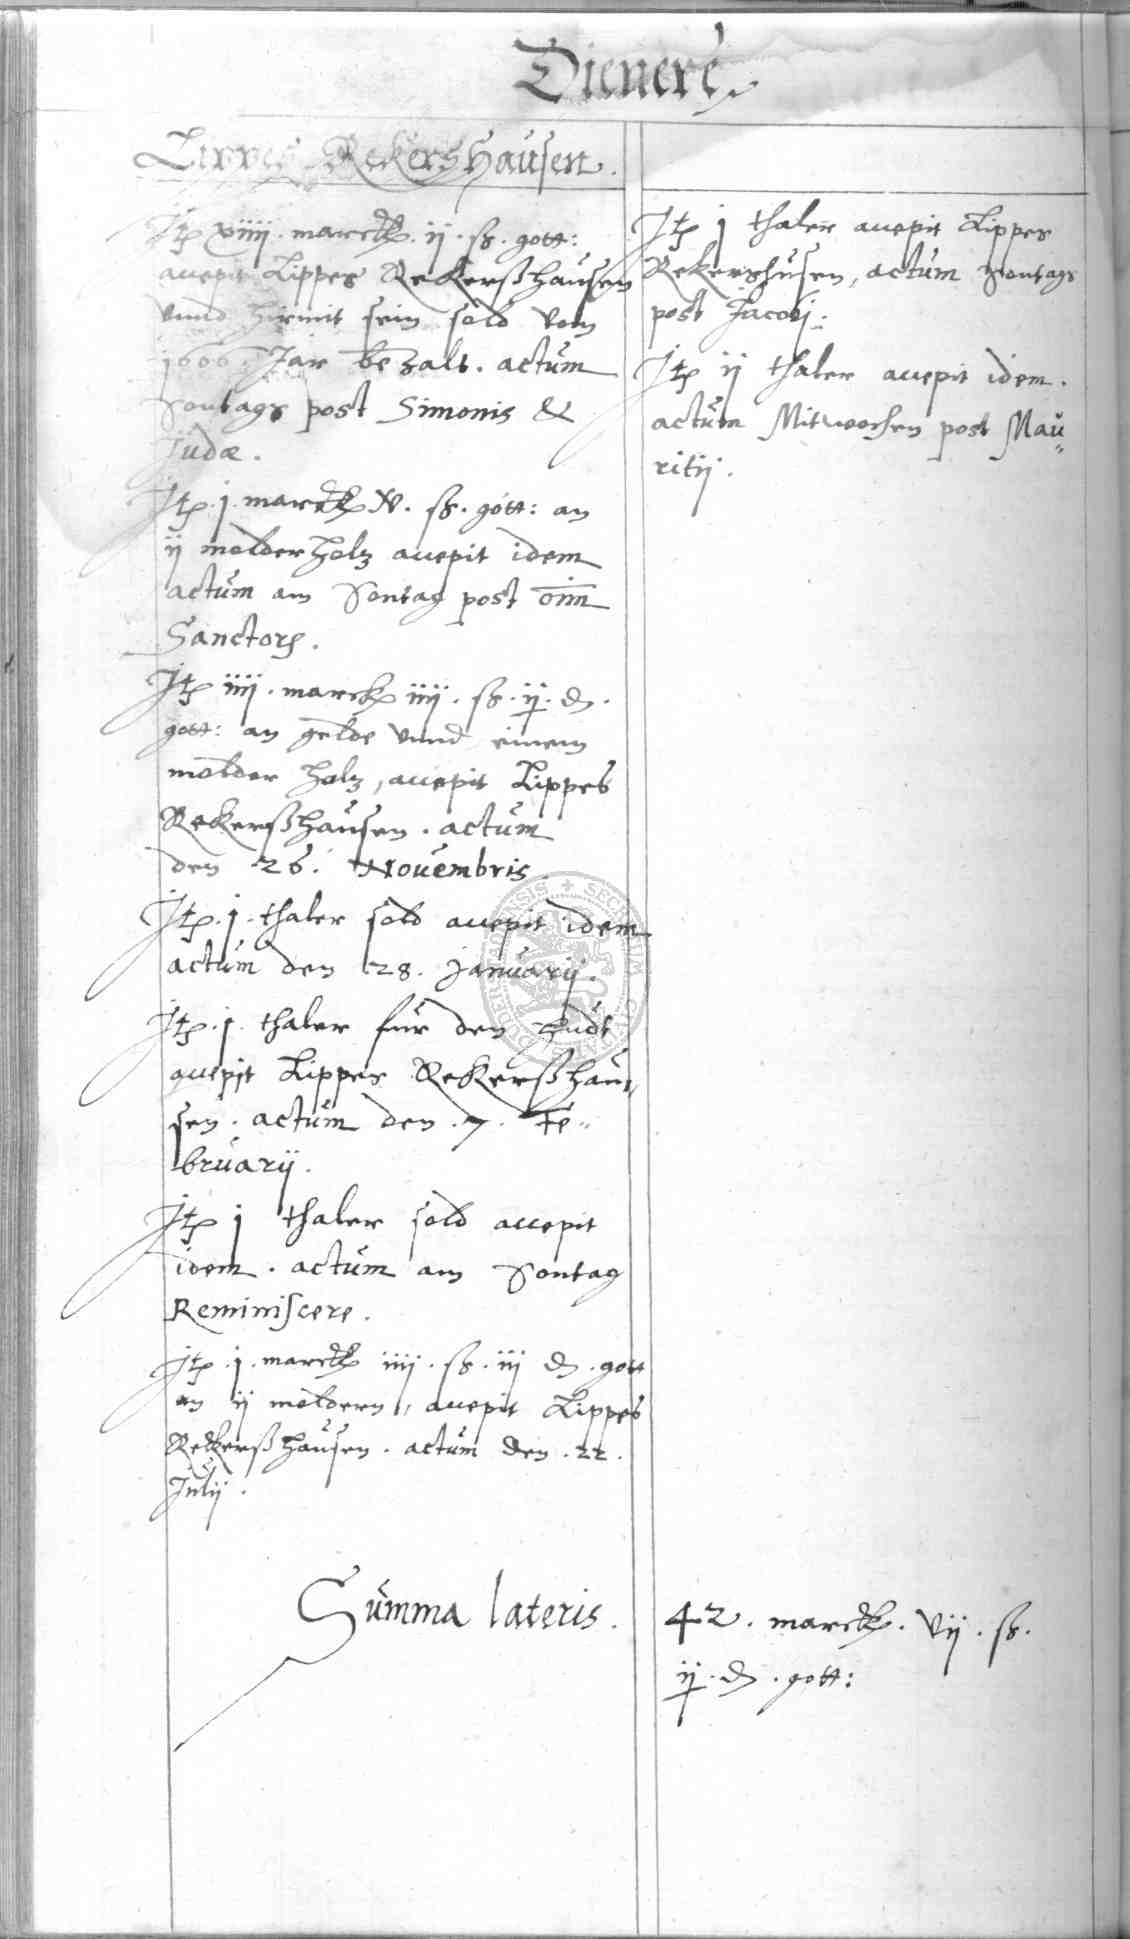 Dienere
Lippes Rekershausen.
Jtẽ xviiij. marck. ij. ß. gott:
accepit Lippes Rekerßhausen
vnnd hirmit sein sold vom
1606. Jar bezalt. actum
Sontags post Simonis &
Judæ.
Jtẽ. j. marck v. ß. gott: an
ij molder holz accepit idem
actum am Sontag post om̄
Sanctorꝭ.
Jtẽ iiij. marck iiij. ß. ij. ₰.
gott: an gelde vnnd einem
molder holz, accepit Lippes
Rekerßhausen. actum
den 26. Novembris.
Jtẽ. j. thaler sold accepit idem
actum den 28. Januarij.
Jtẽ. j. thaler für den
accepit Lippes Rekerßhau„
sen. actum den. 7. Fe„
bruarij.
Jtẽ j thaler sold accepit
idem. actum am Sontag
Reminiscere.
Jtẽ. j. marck iiij. ß. iij ₰. gott
an ij moldern, accepit Lippes
Rekerßhausen. actum den. 22.
Julij.
Jtẽ j thaler accepit Lippes
Rekershusen, actum Sontags
post Jacobj.
Jtẽ ij thaler accepit idem.
actum Mitwochen post Mau„
ritij.
Summa lateris. 42. marck. vij. ß.
ij. ₰. gott: